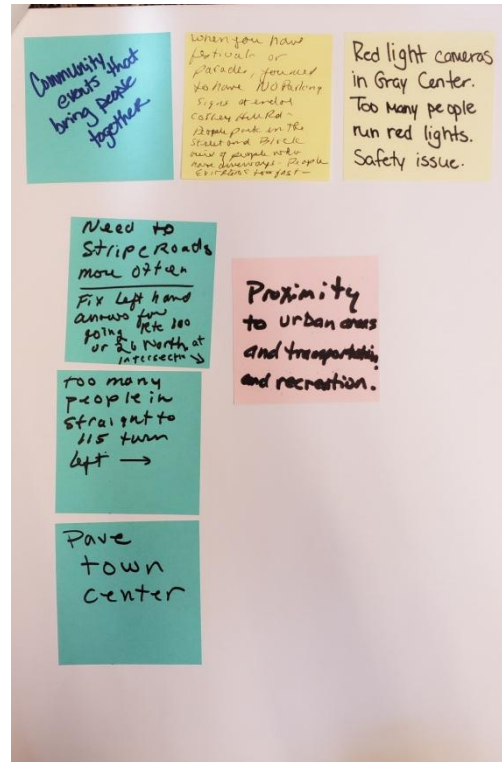 Community
events that
bring people
together
When you have
festivals or
parades, you need
to have NO Parking
Signs at end of
Hill Rd -
People park in the
Street and Block
view of people who
have driveways - People
too fast -
Red light cameras
in Gray Center.
Too Many people
run red lights.
Safety issue.
Need to
Stripe Roads
more often
Fix Left hand
arrows for
going Rte 100
or 26 North at
intersectn
Proximity
to urban areas
and transportation
and recreation.
too many
people in
straight to
115 turn
left →
Pave
town
center